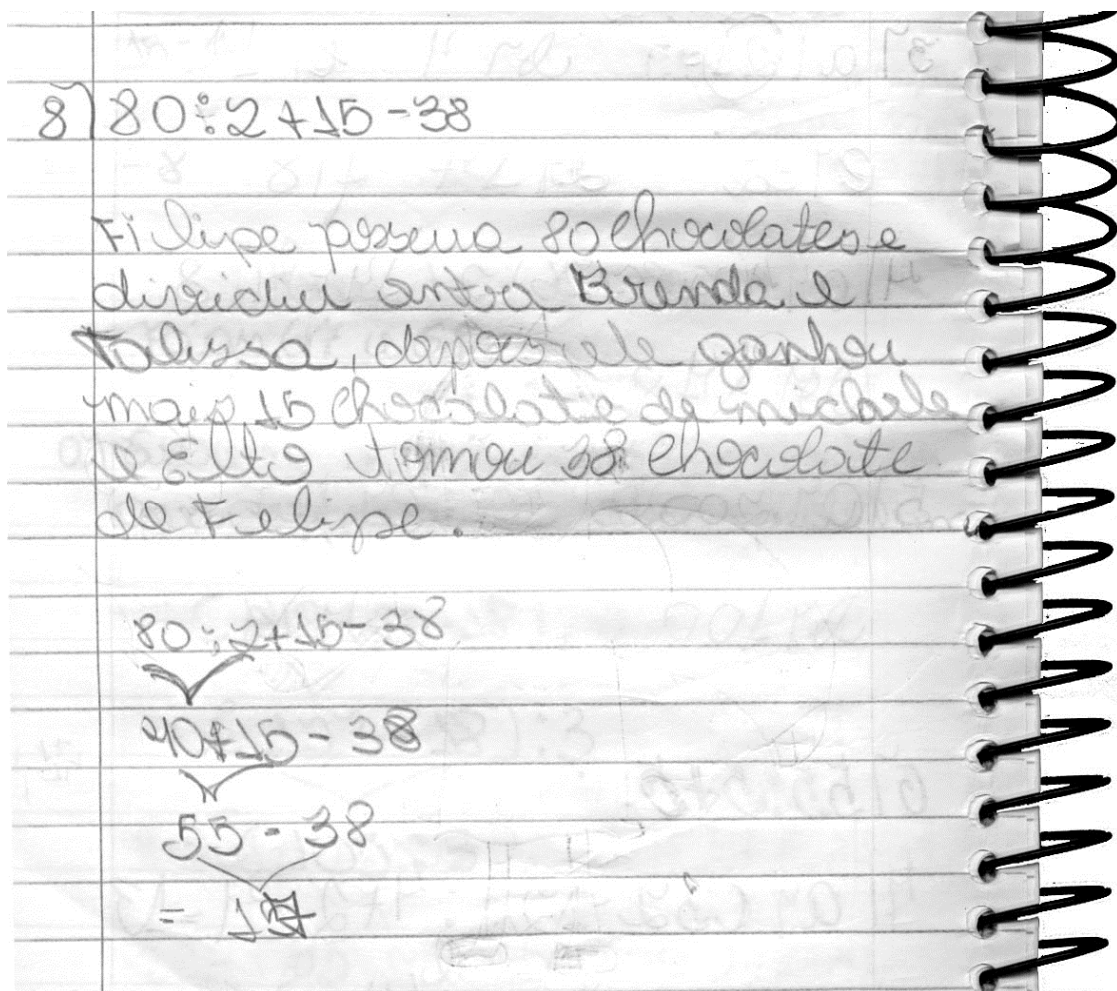 8) 80:2+15-38
Filipe possuia 80 chocolates e
dividiu entra Brenda e
Talissa, depois ele ganhou
mais 15 chocolate de michele
e Ellto tomou 38 chocolate
de Felipe.
80:2+15-38
40+15-38
55-38
= 17